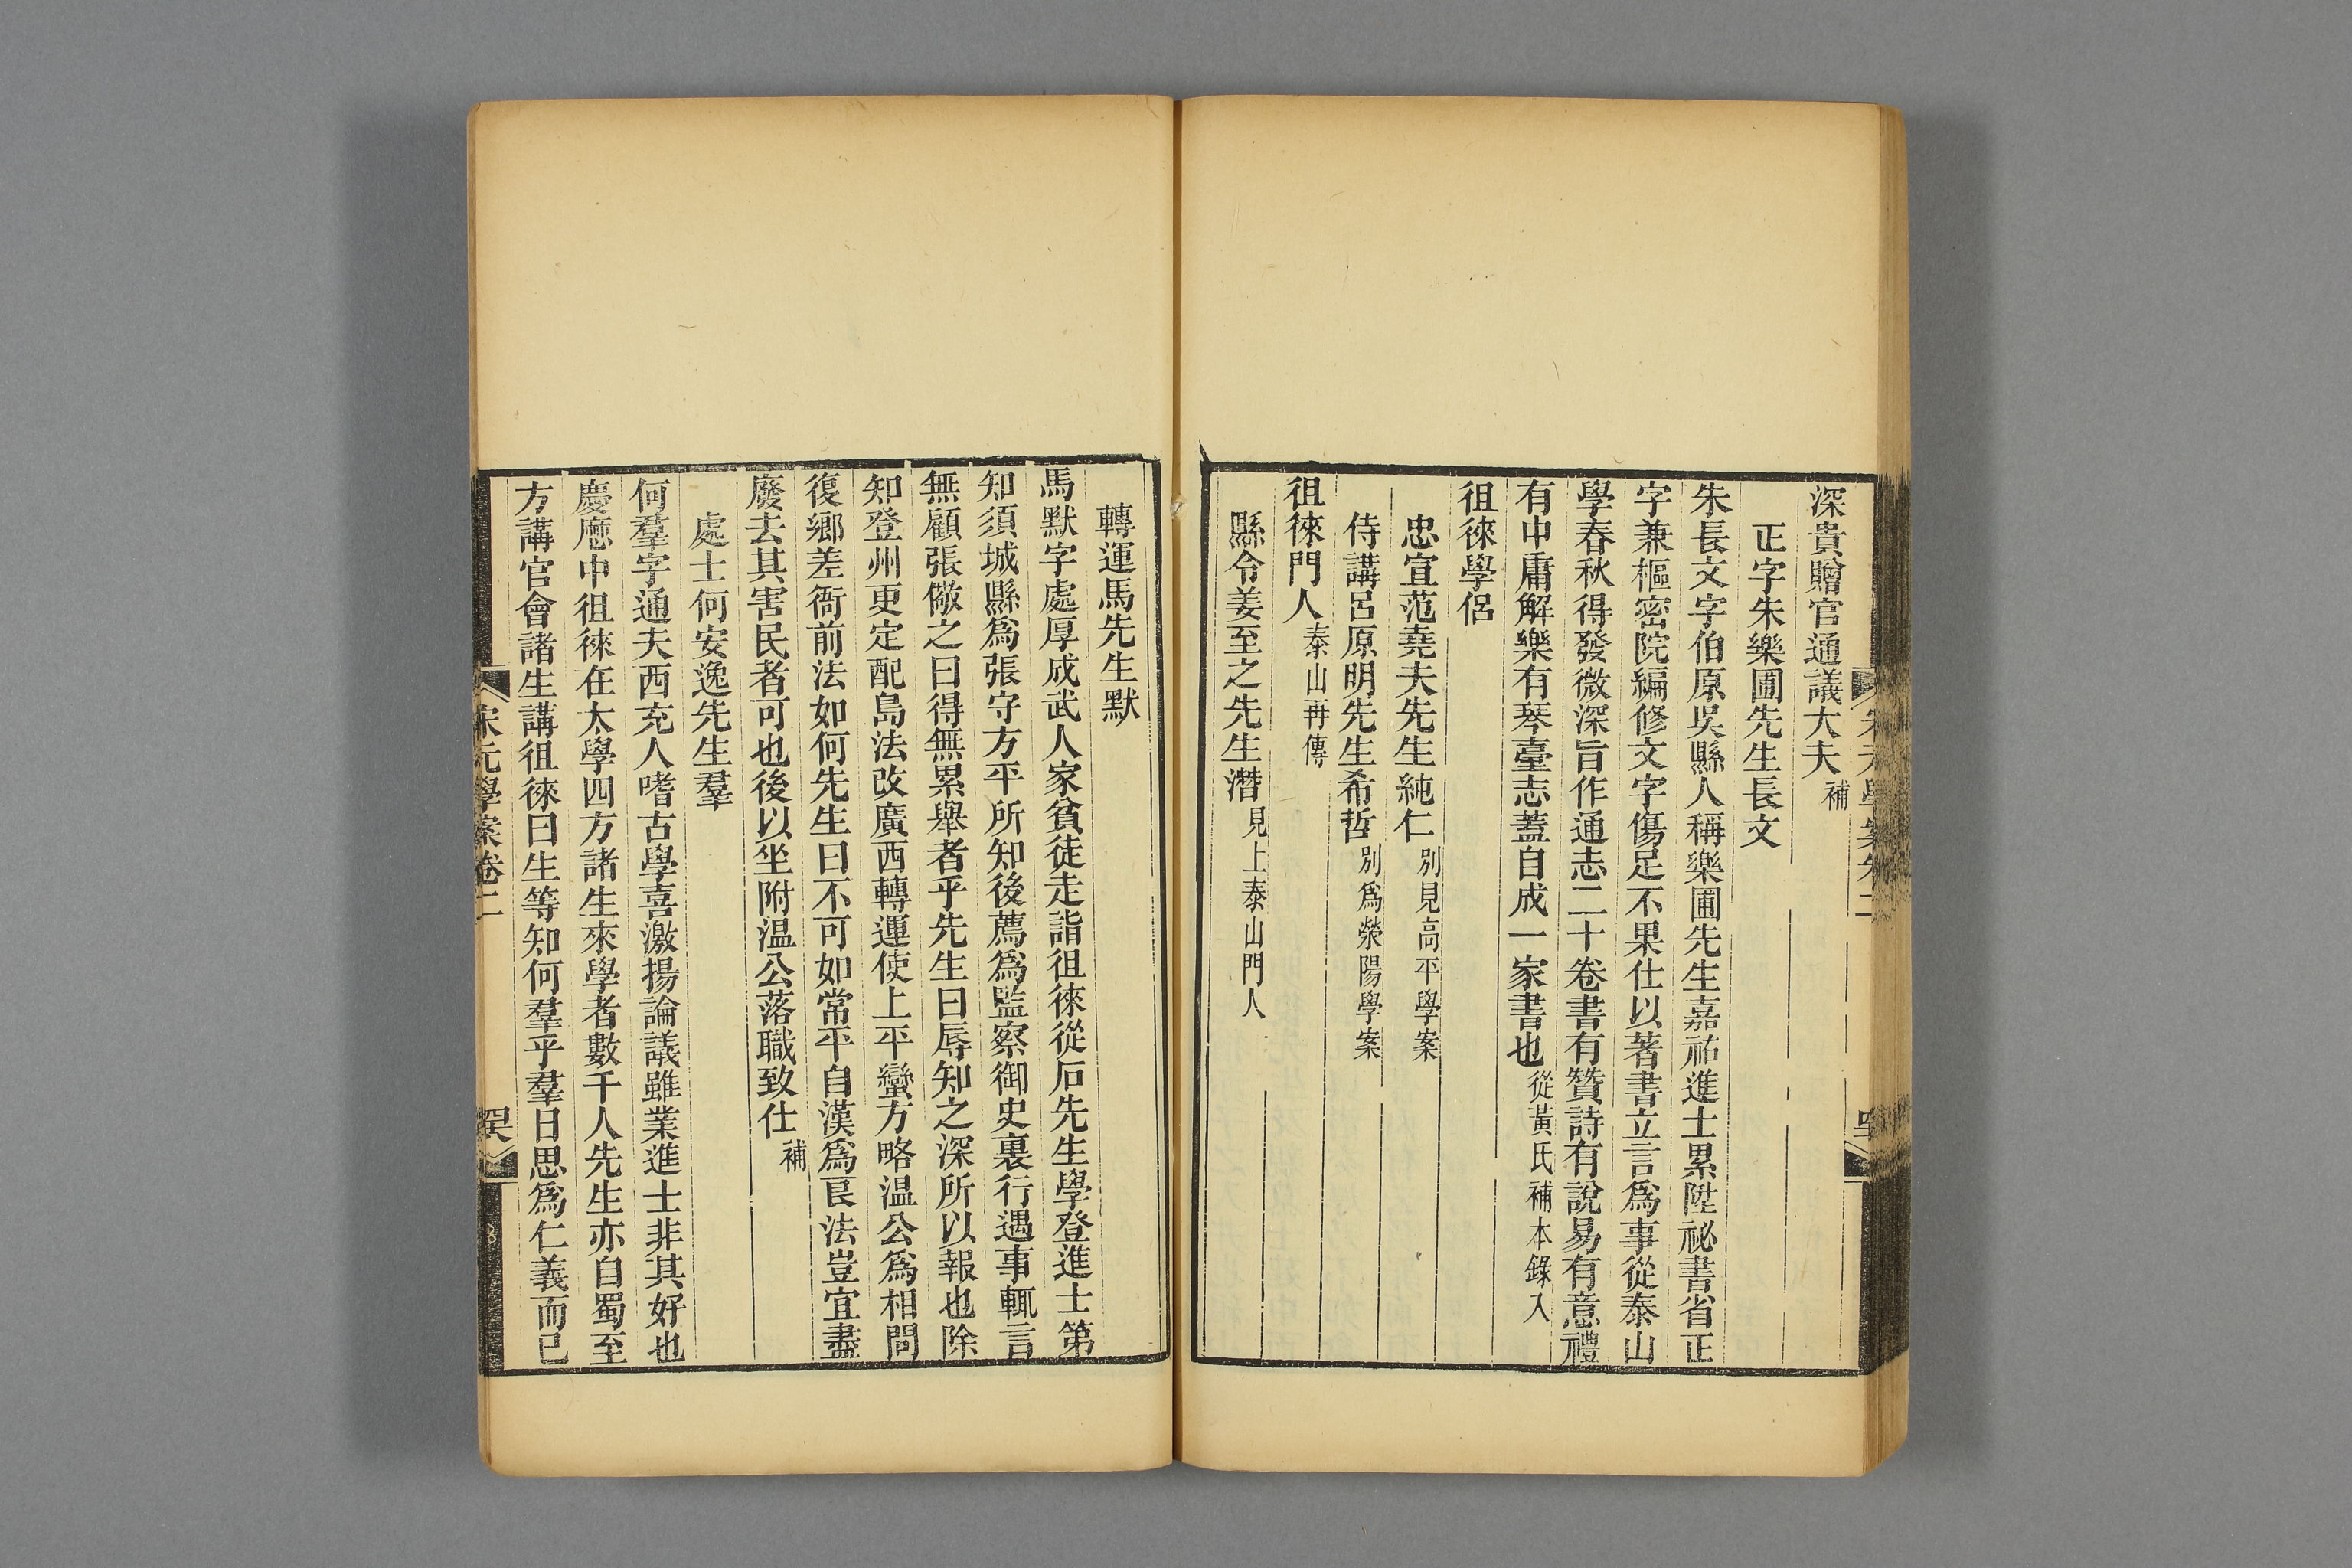 深貴贈官通議大夫補
正字朱樂圃先生長文
朱長文字伯原吳縣人稱樂圃先生嘉祐進士累陞祕書省正
字兼樞密院編修文字傷足不果仕以著書立言爲事從泰山
學春秋得發微深旨作通志二十卷書有贊詩有說易有意禮
有中庸解樂有琴臺志蓋自成一家書也從黃氏補本錄入
徂徠學侶
忠宣范堯夫先生純仁別見高平學案
侍講呂原明先生希哲別爲滎陽學案
徂徠門人泰山再傳
縣令姜至之先生潛見上泰山門人
轉運馬先生默
馬默字處厚成武人家貧徒走詣徂徠從石先生學登進士第
知須城縣爲張守方平所知後薦爲監察御史裏行遇事輒言
無顧張儆之曰得無累舉者乎先生曰辱知之深所以報也除
知登州更定配島法改廣西轉運使上平蠻方略温公爲相問
復鄉差衙前法如何先生曰不可如常平自漢爲艮法豈宜盡
廢去其害民者可也後以坐附温公落職致仕補
處士何安逸先生羣
何羣字通夫西充人嗜古學喜激揚論議雖業進士非其好也
慶應中徂徠在太學四方諸生來學者數千人先生亦自蜀至
方講官會諸生講徂徠曰生等知何羣乎羣日思爲仁義而已
宋元學案卷二